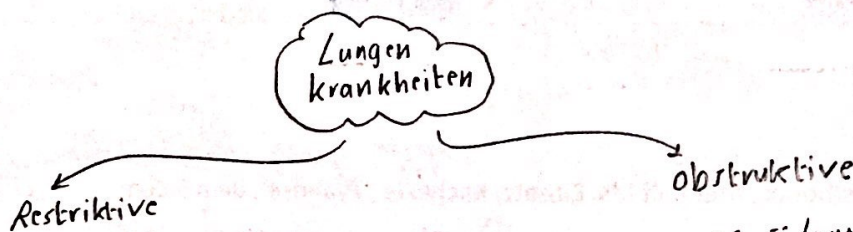 Lungen
krankheiten
Restriktive
obstruktive